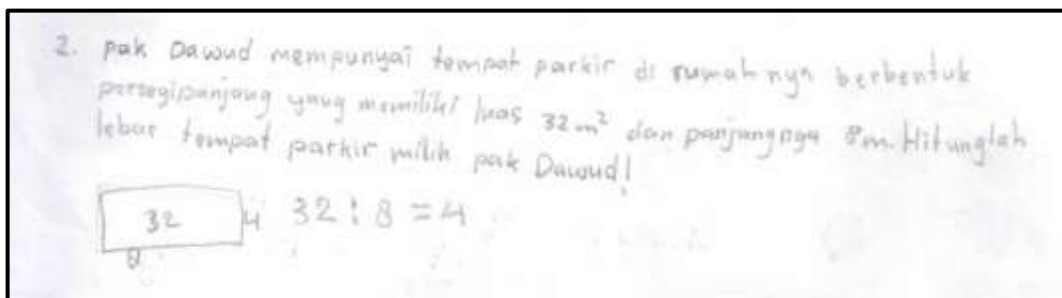 2. pak Dawud mempunyai tempat parkir di rumahnya berbentuk
persegipanjang yang memiliki luas 32 m² dan panjangnya 8m. Hitunglah
lebar tempat parkir milik pak Dawud!
32 4 32 : 8 = 4
8